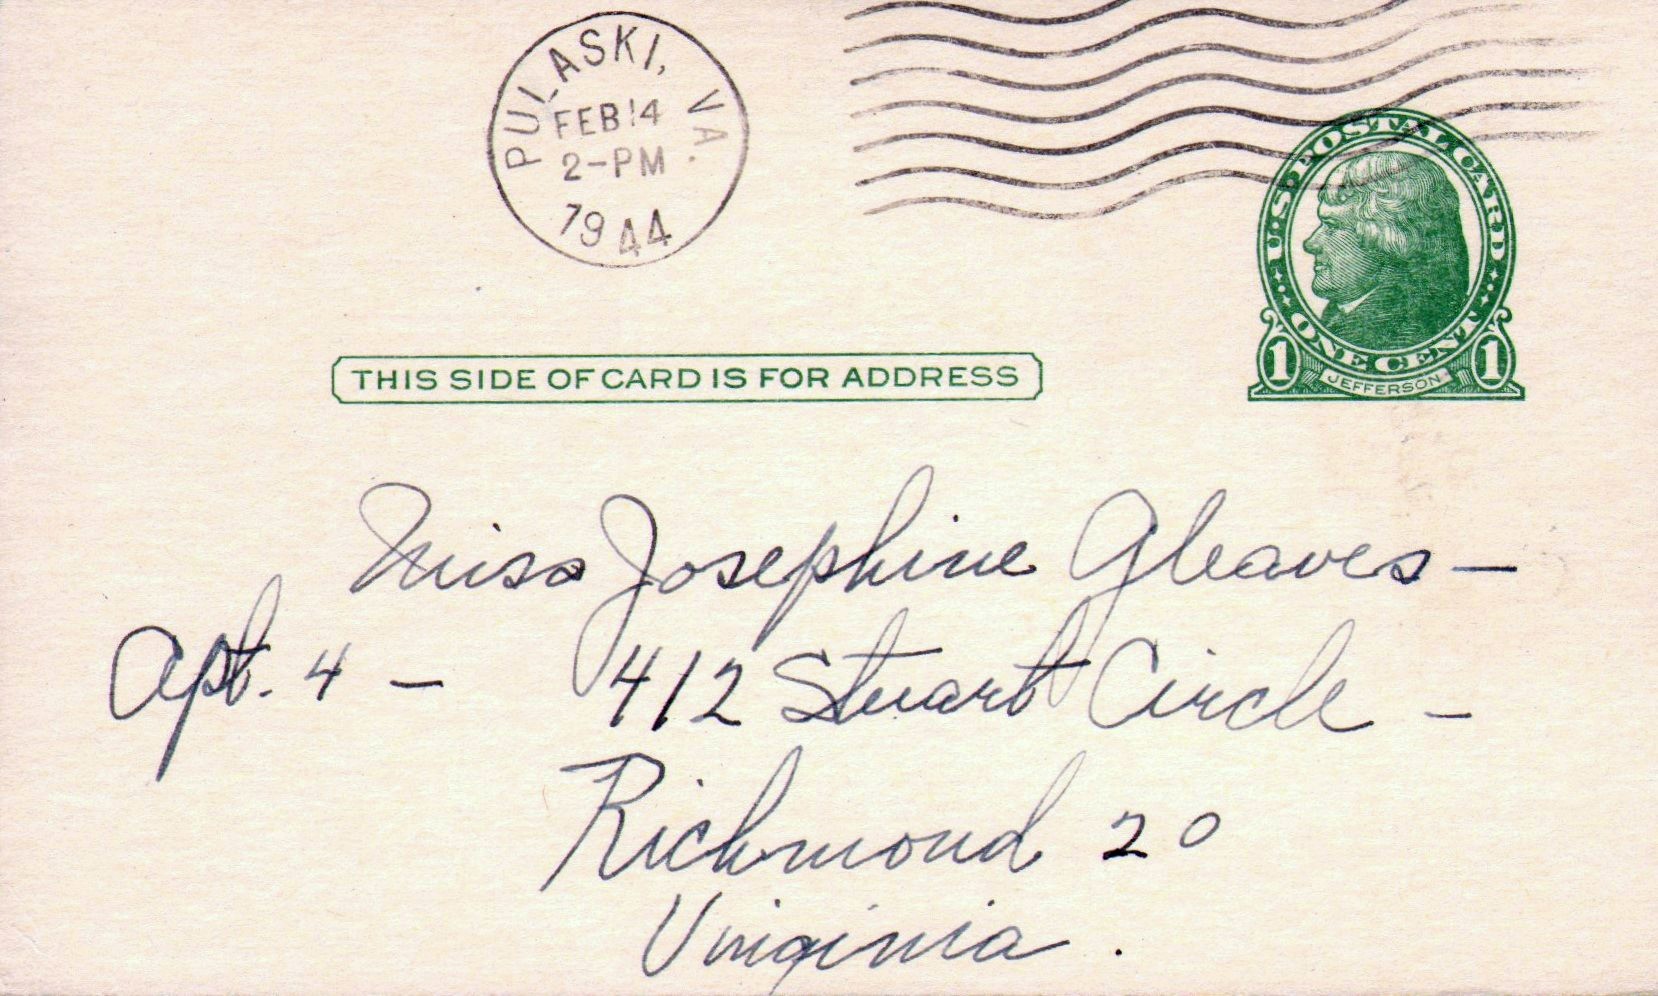 PULASKI, VA.
FEB 14
2-PM
1944
U.S. POSTAL CARD
ONE CENT
1 JEFFERSON 1
THIS SIDE OF CARD IS FOR ADDRESS
Miss Josephine Gleaves —
Apt. 4 — 412 Stuart Circle —
Richmond 20
Virginia.